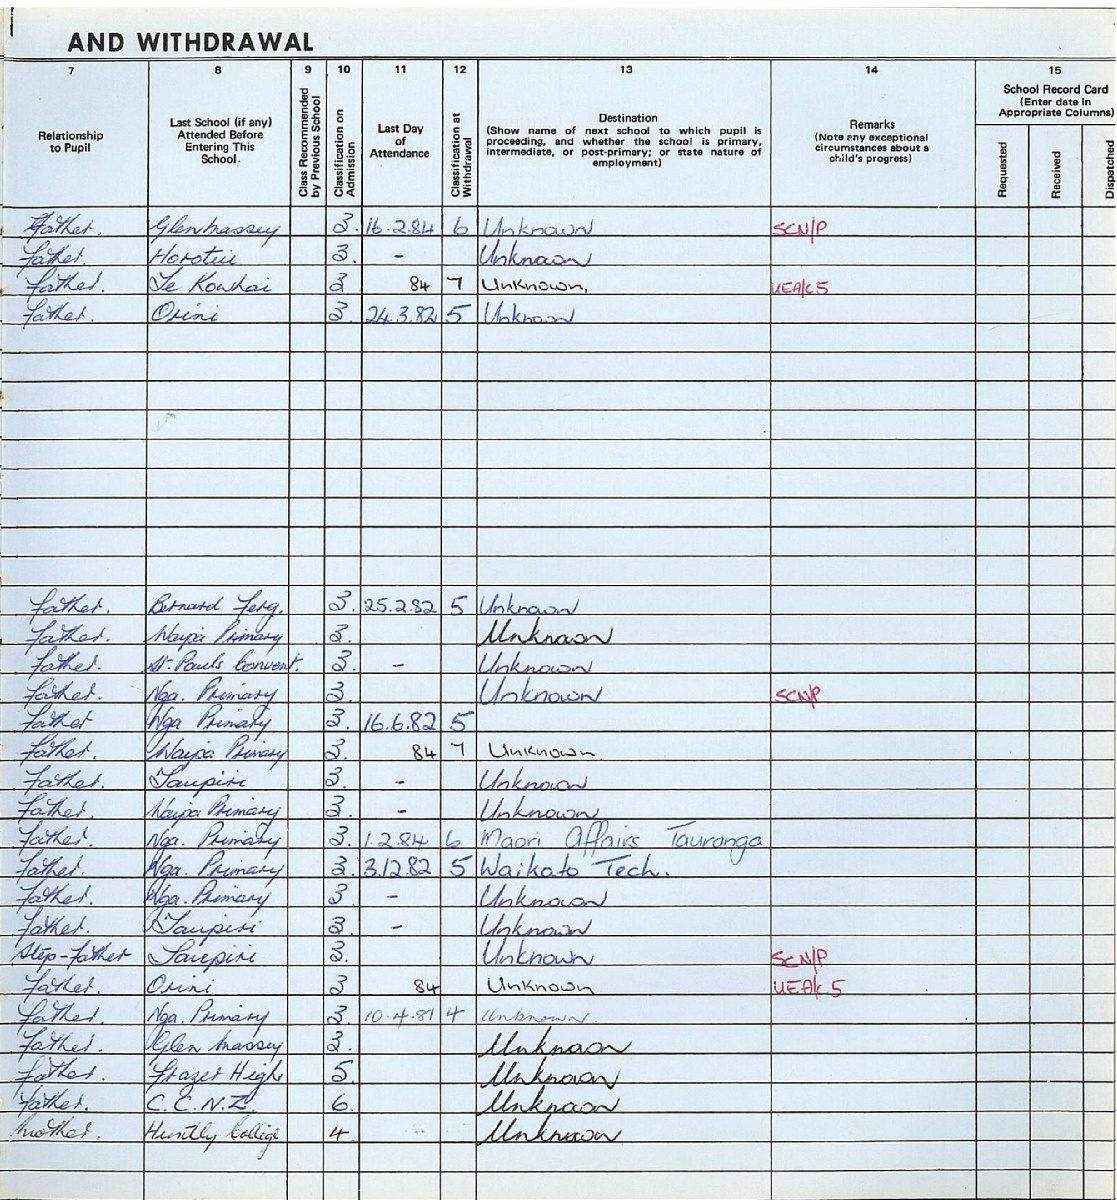 AND WITHDRAWAL
7 8 9 10 11 12 13 14 15
Relationship to Pupil
Last School (if any) Attended Before Entering This School.
Class Recommended by Previous School
Classification on Admission
Last Day of Attendance
Classification at Withdrawal
Destination
(Show name of next school to which pupil is proceeding, and whether the school is primary, intermediate, or post-primary; or state nature of employment)
Remarks
(Note any exceptional circumstances about a child's progress)
School Record Card
(Enter date in Appropriate Columns)
Requested
Received
Dispatched
Father. Glen Massey 3. 16.2.84 6 Unknown SCN/P
Father. Horotiu 3. - Unknown
Father. Te Kowhai 3 84 7 Unknown. UEA/c 5
Father. Orini 3. 24.3.82 5 Unknown
Father. Bernard Ferg. 3. 25.2.82 5 Unknown
Father. Waipa Primary 3. Unknown
Father. St. Pauls Convent. 3. - Unknown
Father. Nga. Primary 3. Unknown SCN/P
Father. Nga Primary 3. 16.6.82 5
Father. Waipa Primary 3. 84 7 Unknown
Father. Taupiri 3. - Unknown
Father. Waipa Primary 3. - Unknown
Father. Nga. Primary 3. 1.2.84 6 Maori Affairs Tauranga
Father. Nga. Primary 3. 3.12.82 5 Waikato Tech.
Father. Nga. Primary 3 - Unknown
Father. Taupiri 3. - Unknown
Step-father Taupiri 3. Unknown SCN/P
Father. Orini 3 84 Unknown UEA/c 5
Father. Nga. Primary 3. 10.4.81 4 Unknown.
Father. Glen Massey 3. Unknown
Father. Frazer High 5. Unknown
Father. C.C.N.Z. 6. Unknown
Mother. Huntly College 4 Unknown